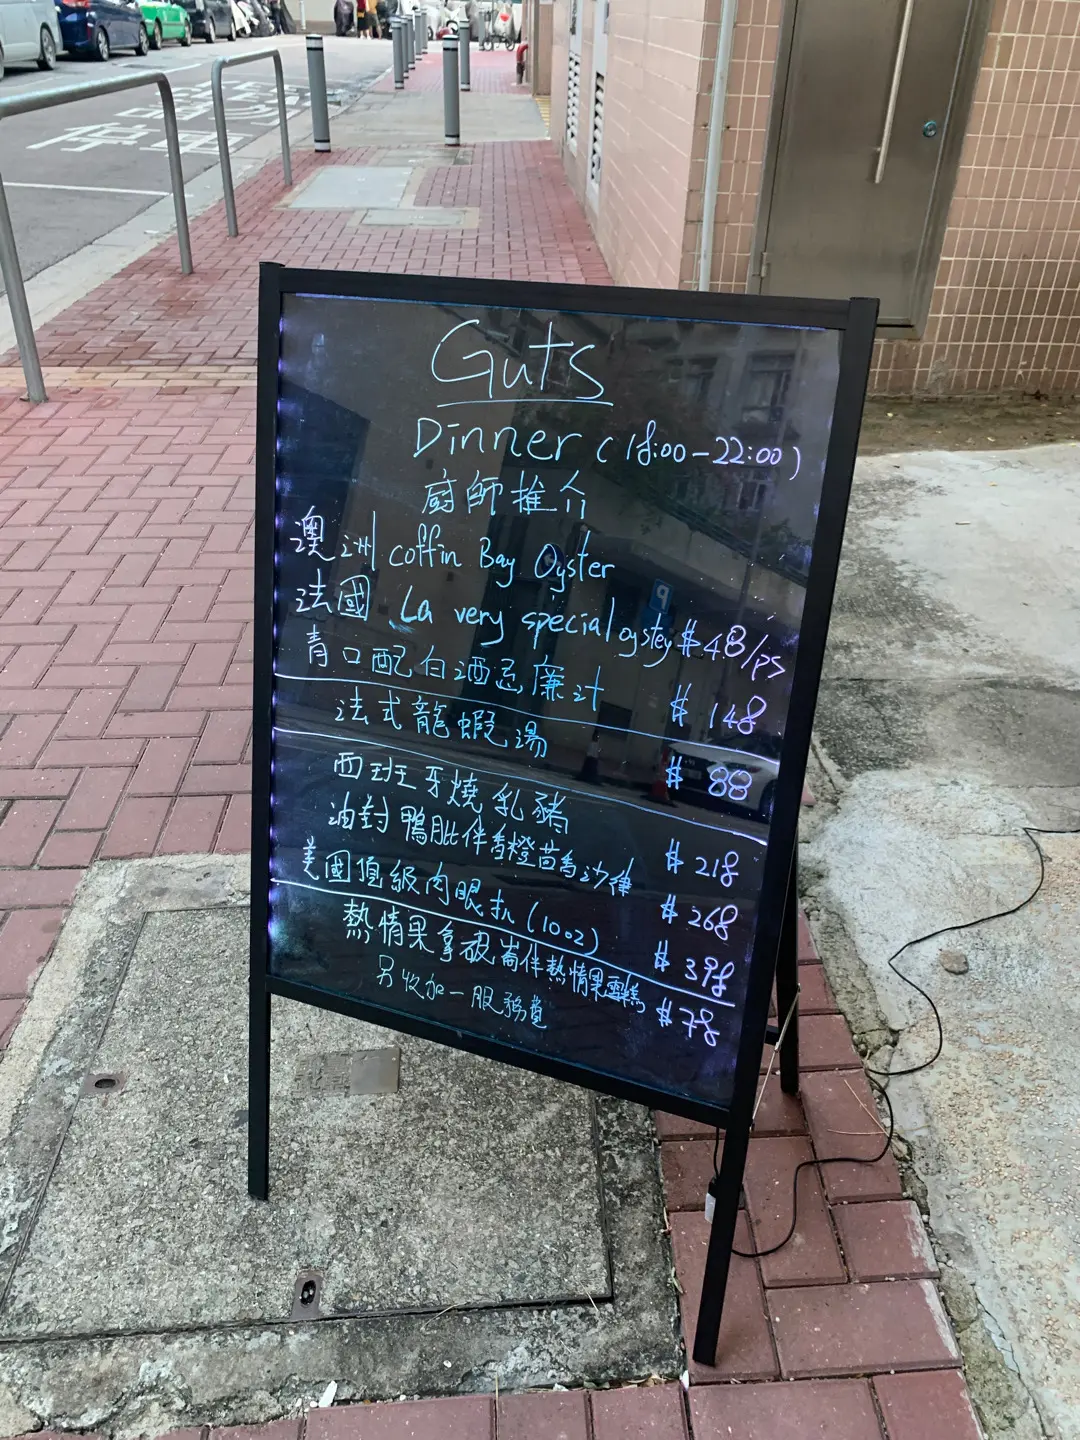 Guts
Dinner (18:00-22:00)
廚師推介
澳洲 coffin Bay Oyster
法國 La very special oyster $48/ps
青口配白酒忌廉汁 $148
法式龍蝦湯 $88
西班牙燒乳豬 $218
油封鴨肶伴香橙茴香沙律 $268
美國頂級肉眼扒 (10oz) $398
熱情果拿破崙伴熱情果雪糕 $78
另收加一服務費
停車
P